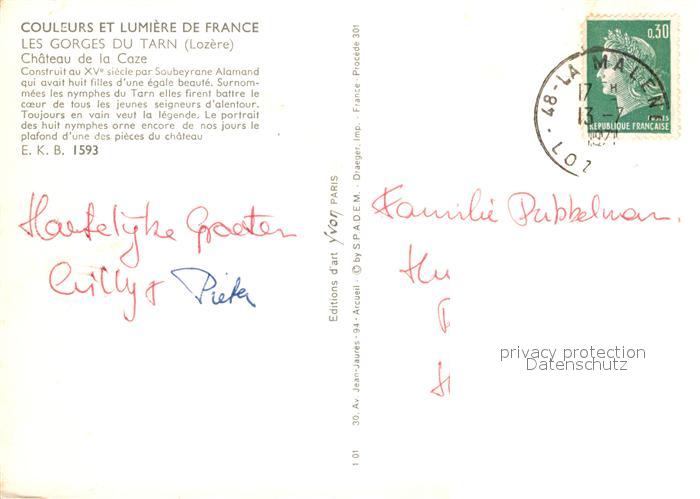 COULEURS ET LUMIÈRE DE FRANCE
LES GORGES DU TARN (Lozère)
Château de la Caze
Construit au XVe siècle par Soubeyrane Alamand
qui avait huit filles d'une égale beauté. Surnom-
mées les nymphes du Tarn elles firent battre le
cœur de tous les jeunes seigneurs d'alentour.
Toujours en vain veut la légende. Le portrait
des huit nymphes orne encore de nos jours le
plafond d'une des pièces du château
E. K. B. 1593
Hartelijke Groeten
Willy &
Pieter
Editions d'art Yvon PARIS
1 01 30, Av. Jean-Jaurès - 94 - Arcueil - © by S.P.A.D.E.M. - Draeger, Imp. - France - Procédé 301
0,30
RÉPUBLIQUE FRANÇAISE
POSTES
48-LA MALENE
17 H
13-7
1971
LOZ
Familie Dubbelman.
privacy protection
Datenschutz